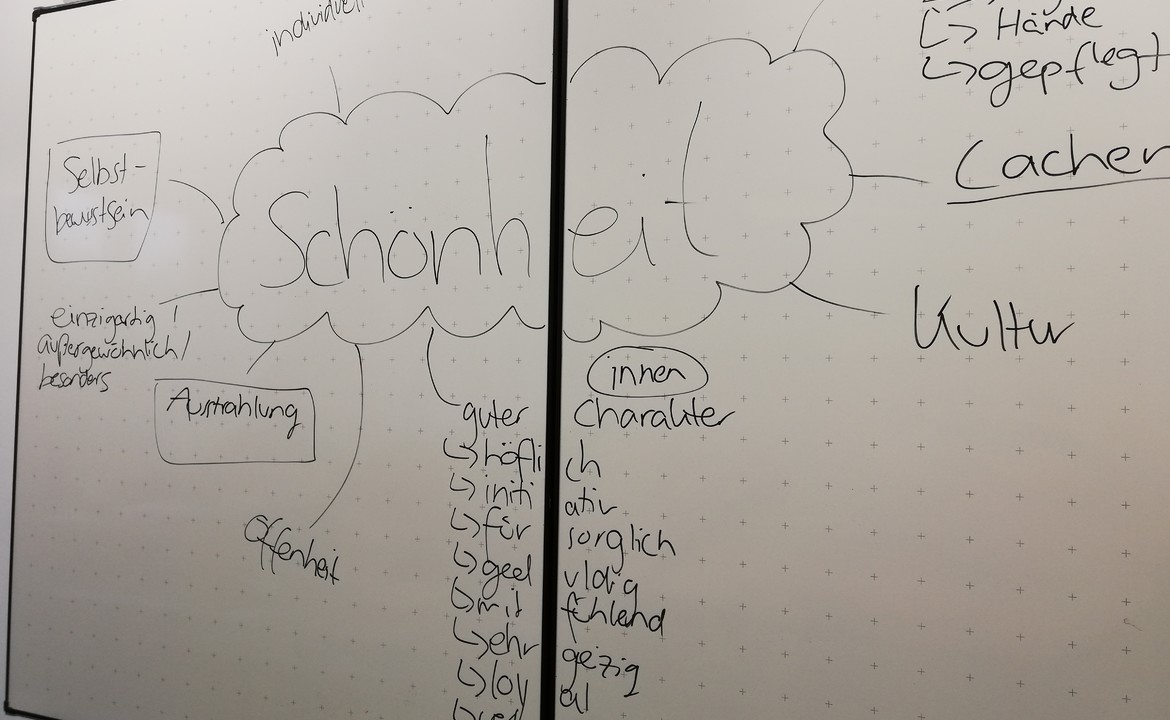 individuell
Hände
gepflegt
Selbst-
bewustsein
Schönheit
Lachen
einzigartig /
außergewöhnlich/
besonders
Kultur
Austrahlung
innen
guter Charakter
höflich
initiativ
fürsorglich
geeduldig
mitfühlend
ehrgeizig
loyal
Offenheit